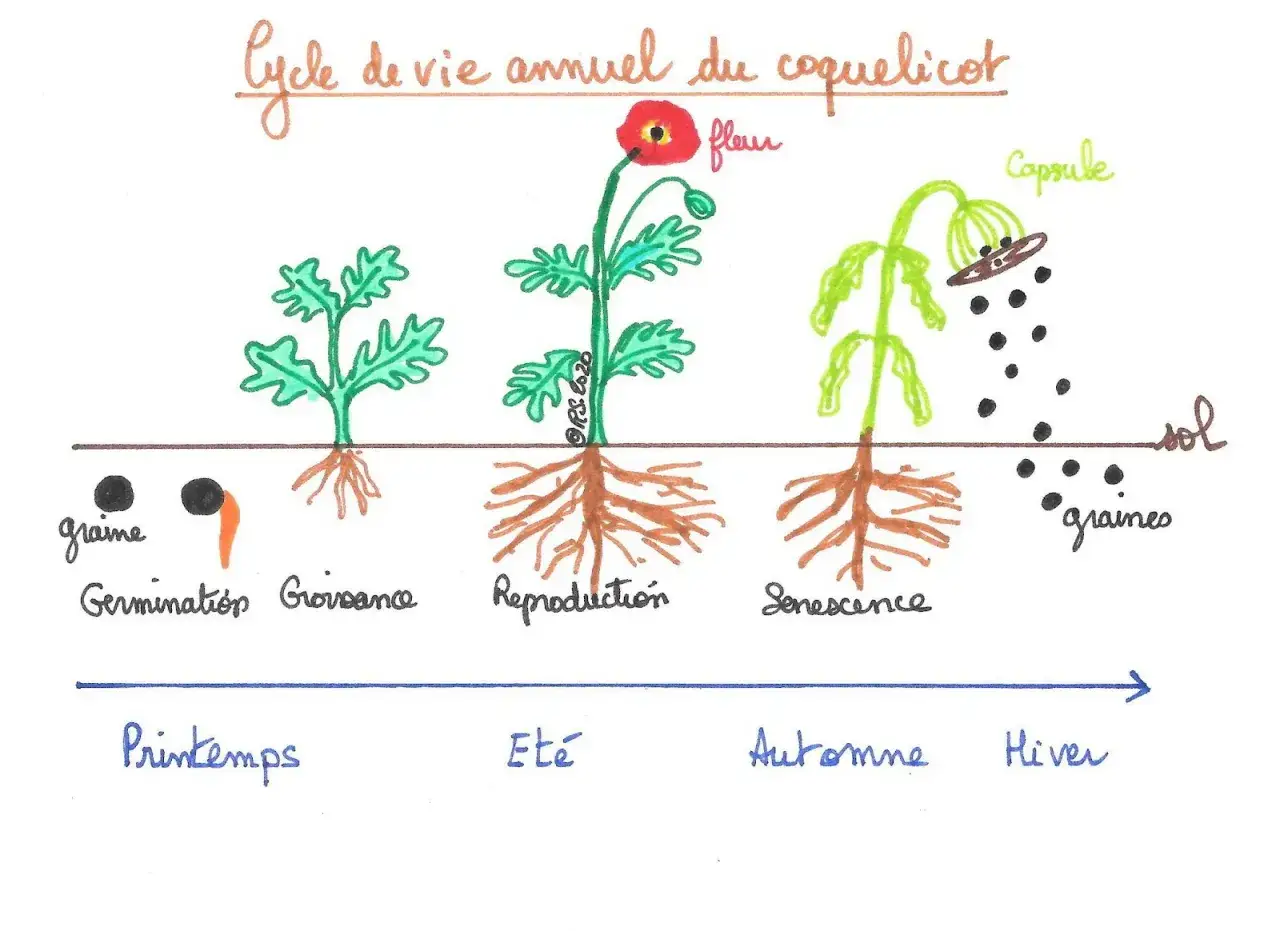 Cycle de vie annuel du coquelicot
fleur
Capsule
@P.S. 2020
sol
graine
graines
Germination Croissance Reproduction Senescence
Printemps Eté Automne Hiver